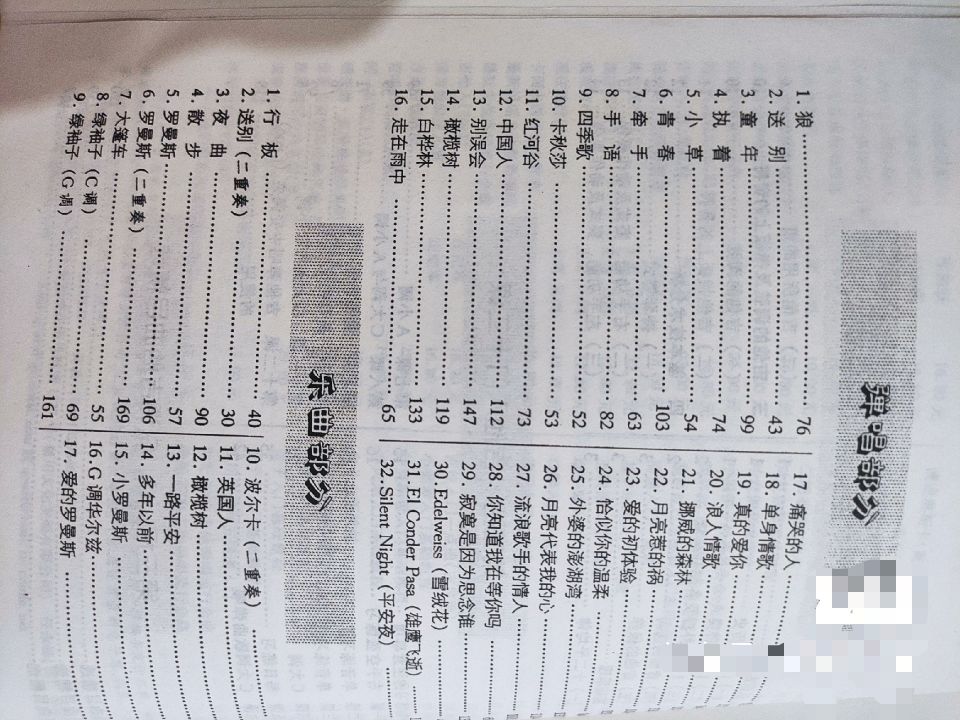 弹唱部分
1. 狼 …… 76
2. 送 别 …… 43
3. 童 年 …… 99
4. 执 着 …… 74
5. 小 草 …… 54
6. 青 春 …… 103
7. 牵 手 …… 63
8. 手 语 …… 82
9. 四季歌 …… 52
10. 卡秋莎 …… 53
11. 红河谷 …… 73
12. 中国人 …… 112
13. 别误会 …… 147
14. 橄榄树 …… 119
15. 白桦林 …… 133
16. 走在雨中 …… 65
17. 痛哭的人 ……
18. 单身情歌 ……
19. 真的爱你 ……
20. 浪人情歌 ……
21. 挪威的森林 ……
22. 月亮惹的祸 ……
23. 爱的初体验 ……
24. 恰似你的温柔 ……
25. 外婆的澎湖湾 ……
26. 月亮代表我的心 ……
27. 流浪歌手的情人 ……
28. 你知道我在等你吗 ……
29. 寂寞是因为思念谁 ……
30. Edelweiss（雪绒花）……
31. El Conder Pasa（雄鹰飞逝）……
32. Silent Night（平安夜）……
乐曲部分
1. 行 板 …… 40
2. 送别（二重奏）…… 30
3. 夜 曲 …… 90
4. 散 步 …… 57
5. 罗曼斯 …… 106
6. 罗曼斯（二重奏）…… 169
7. 大篷车 …… 55
8. 绿袖子（C 调）…… 69
9. 绿袖子（G 调）…… 161
10. 波尔卡（二重奏）……
11. 英国人 ……
12. 橄榄树 ……
13. 一路平安 ……
14. 多年以前 ……
15. 小罗曼斯 ……
16. G 调华尔兹 ……
17. 爱的罗曼斯 ……